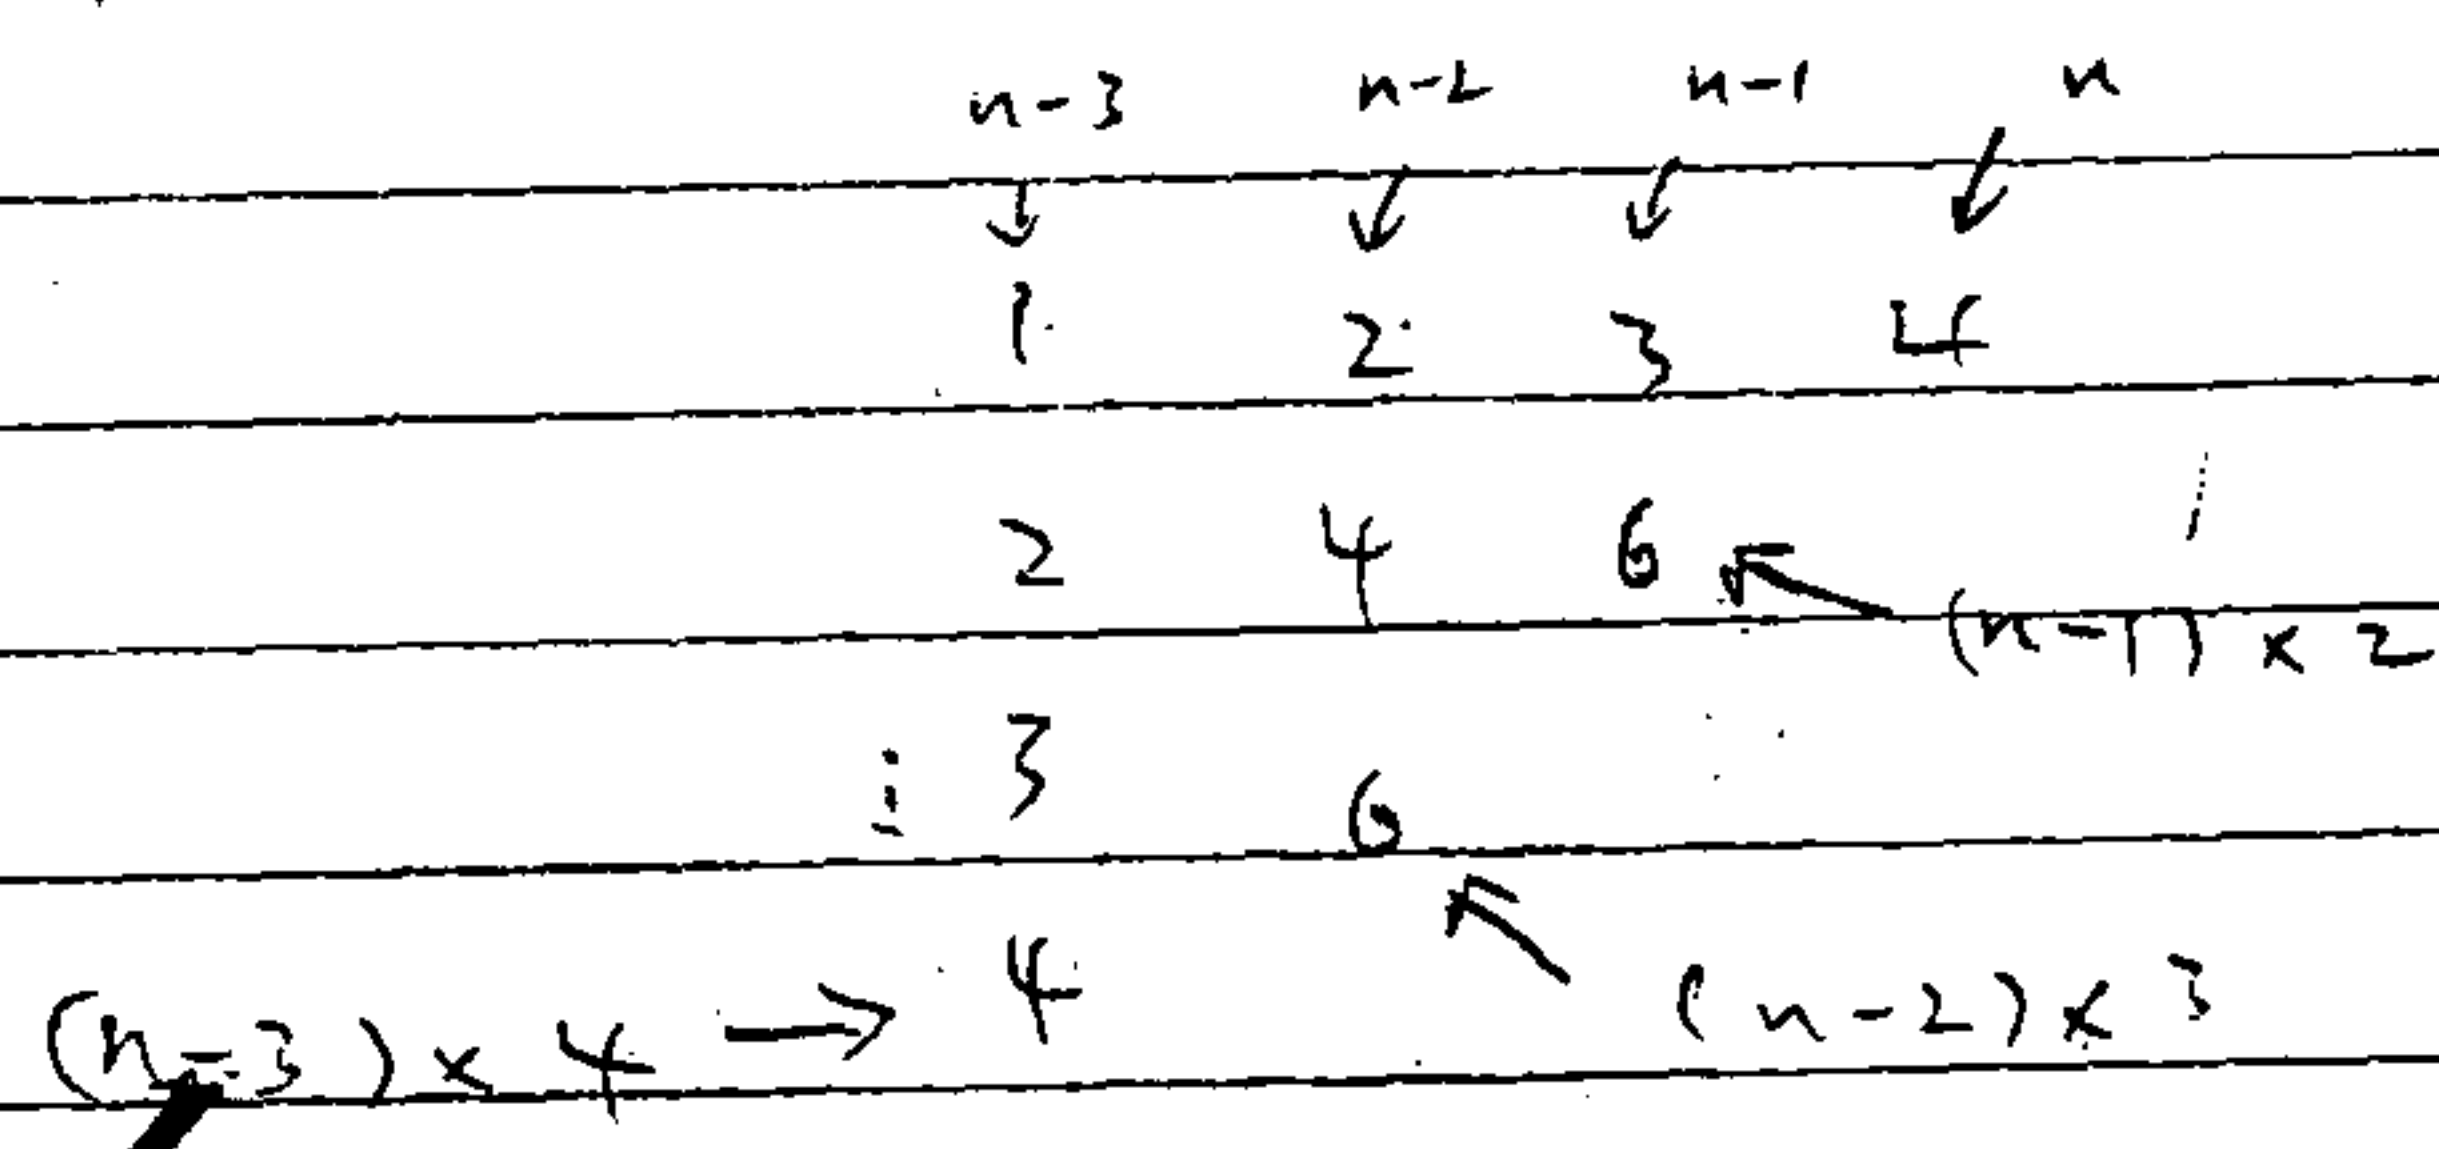 n-3 n-2 n-1 n
↓ ↓ ↓ ↓
1 2 3 4
2 4 6 ← (n-1) × 2
⋮ 3 6
(n-3) × 4 → 4 ↖ (n-2) × 3